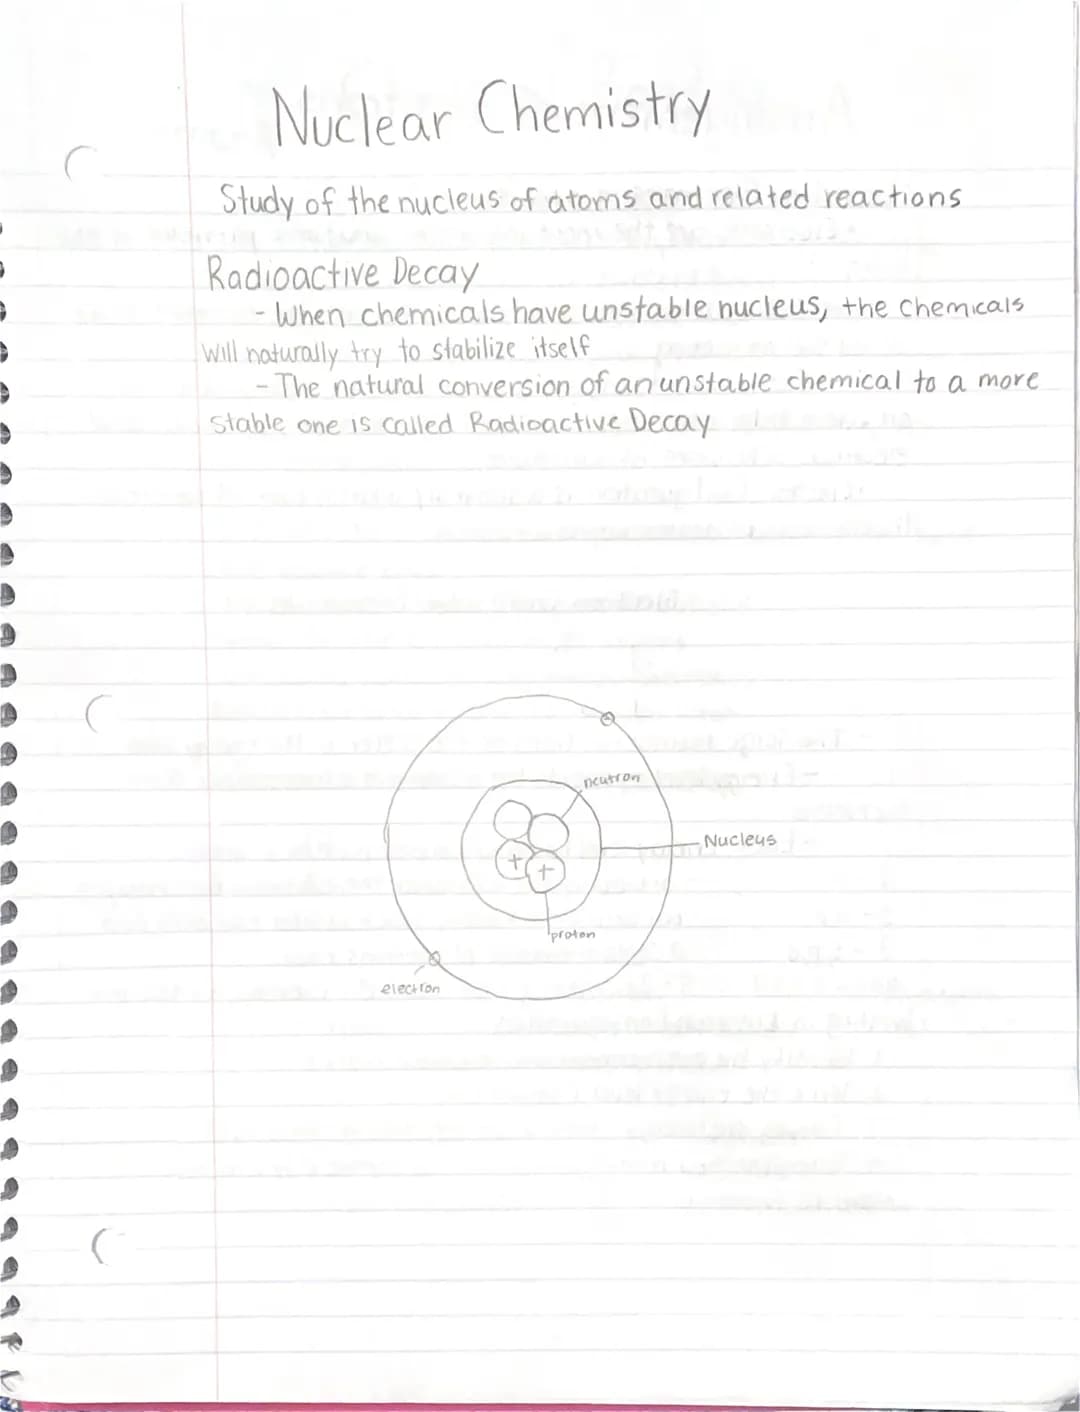 Nuclear Chemistry
Study of the nucleus of atoms and related reactions
Radioactive Decay
- When chemicals have unstable nucleus, the chemicals
will naturally try to stabilize itself
- The natural conversion of an unstable chemical to a more
stable one is called Radioactive Decay
neutron
Nucleus
+
+
proton
electron